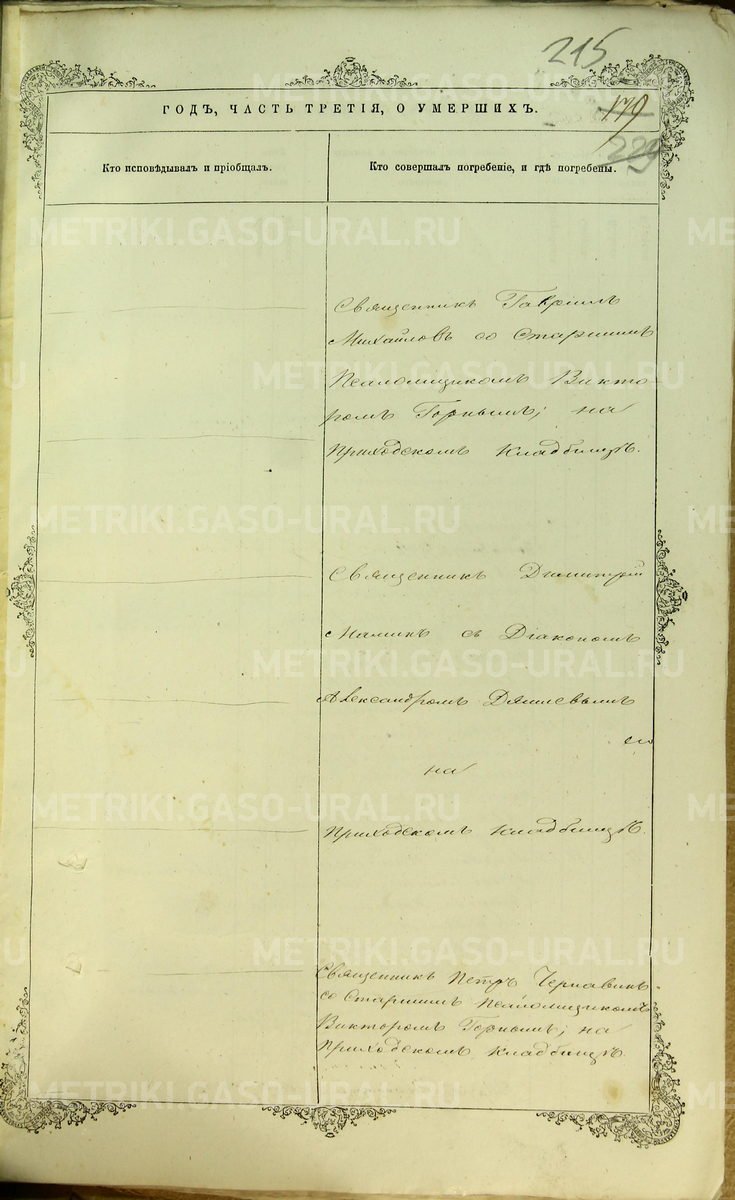 215
ГОДЪ, ЧАСТЬ ТРЕТІЯ, О УМЕРШИХЪ.
179
229
Кто исповѣдывалъ и пріобщалъ.
Кто совершалъ погребеніе, и гдѣ погребены.
Священникъ Гавріилъ
Михайловъ со Старшимъ
Псаломщикомъ Викто-
ромъ Горнымъ; на
Приходскомъ Кладбищѣ.
Священникъ Димитрій
Маминъ съ Діакономъ
Александромъ
на
Приходскомъ Кладбищѣ.
Священникъ Петръ Чернавинъ
со Старшимъ Псаломщикомъ
Викторомъ Горнымъ; на
Приходскомъ Кладбищѣ.
METRIKI.GASO-URAL.RU